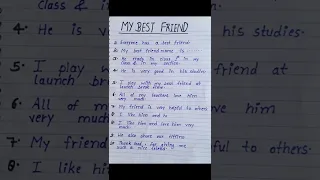 MY BEST FRIEND
1. Everyone has a best friend.
2. My best friend name is
3. He in class 1st in my
class & in my section.
4. He is very good in his studies.
5. I play with my best friend at
launch break time.
6. All of my teachers love him
very much.
7. My friend is very helpful to others.
8. I like him and he
9. I like him and love him very
much.
10. We also share our tiffins.
11. Thank God, for giving me
such a nice friend.
class & i
4. He is v
5. I play
launch
6. All of
very mu
7. My friend
8. I like hi
his studies.
friend at
him
to others.